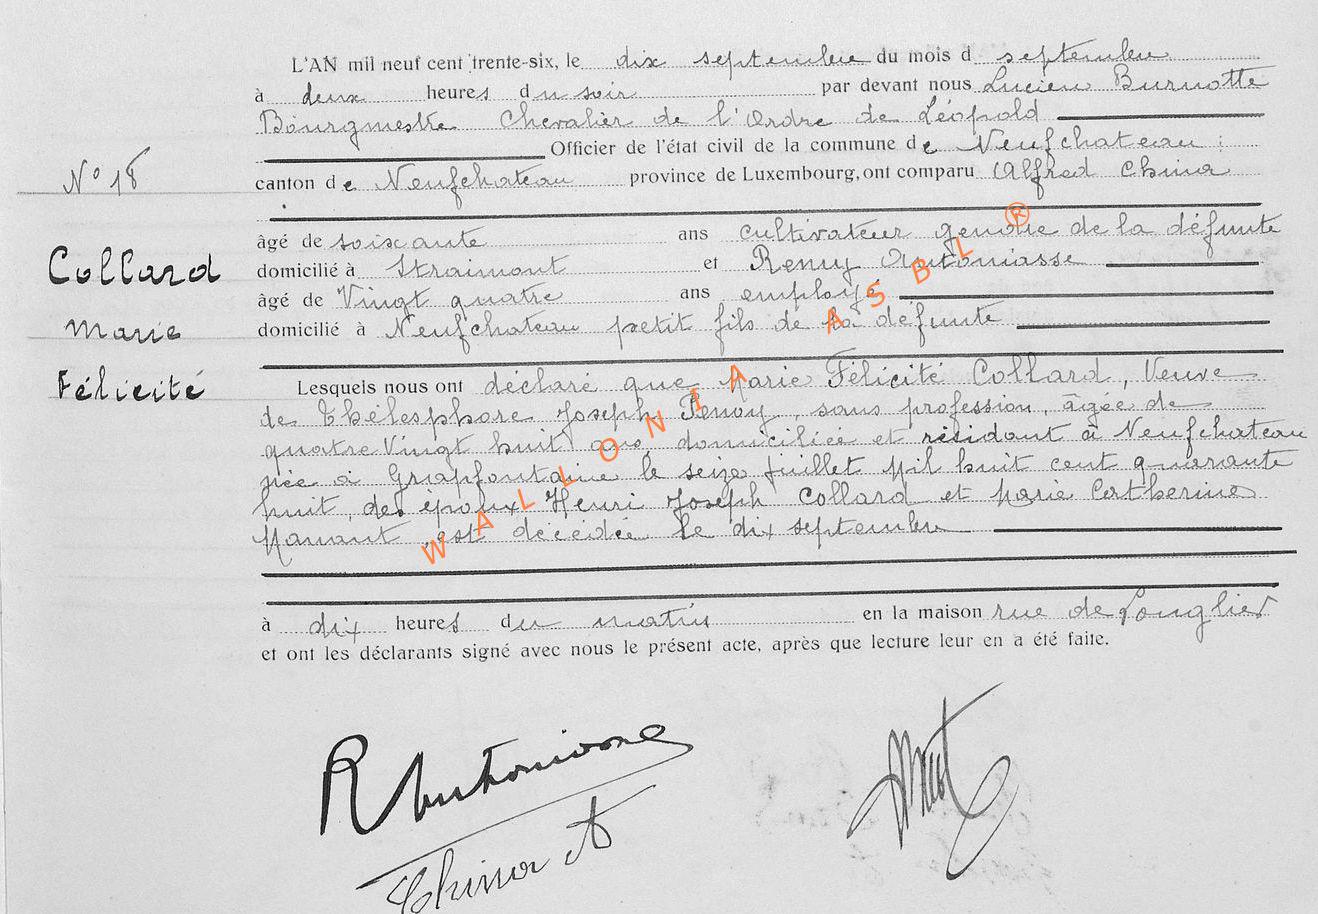 L'AN mil neuf cent trente-six, le dix septembre du mois d septembre
à deux heures du soir par devant nous Lucien Burnotte
Bourgmestre Chevalier de l'Ordre de Léopold
Officier de l'état civil de la commune de Neufchateau
N° 18
canton de Neufchateau province de Luxembourg, ont comparu Alfred China
âgé de soixante ans cultivateur gendre de la défunte
Collard
domicilié à Straimont et Remy Antoniasse
âgé de Vingt quatre ans employé
Marie
domicilié à Neufchateau petit fils de la défunte
Félicité
Lesquels nous ont déclaré que Marie Félicité Collard, Veuve
de Thélesphore Joseph Renoy, sans profession, âgée de
quatre Vingt huit ans, domiciliée et résidant à Neufchateau
née à Grapfontaine le seize Juillet Mil huit cent quarante
huit, des époux Henri Joseph Collard et Marie Catherine
Manant est décédée le dix septembre
à dix heures du matin en la maison rue de Longlier
et ont les déclarants signé avec nous le présent acte, après que lecture leur en a été faite.
WALLONIA ASBL ®